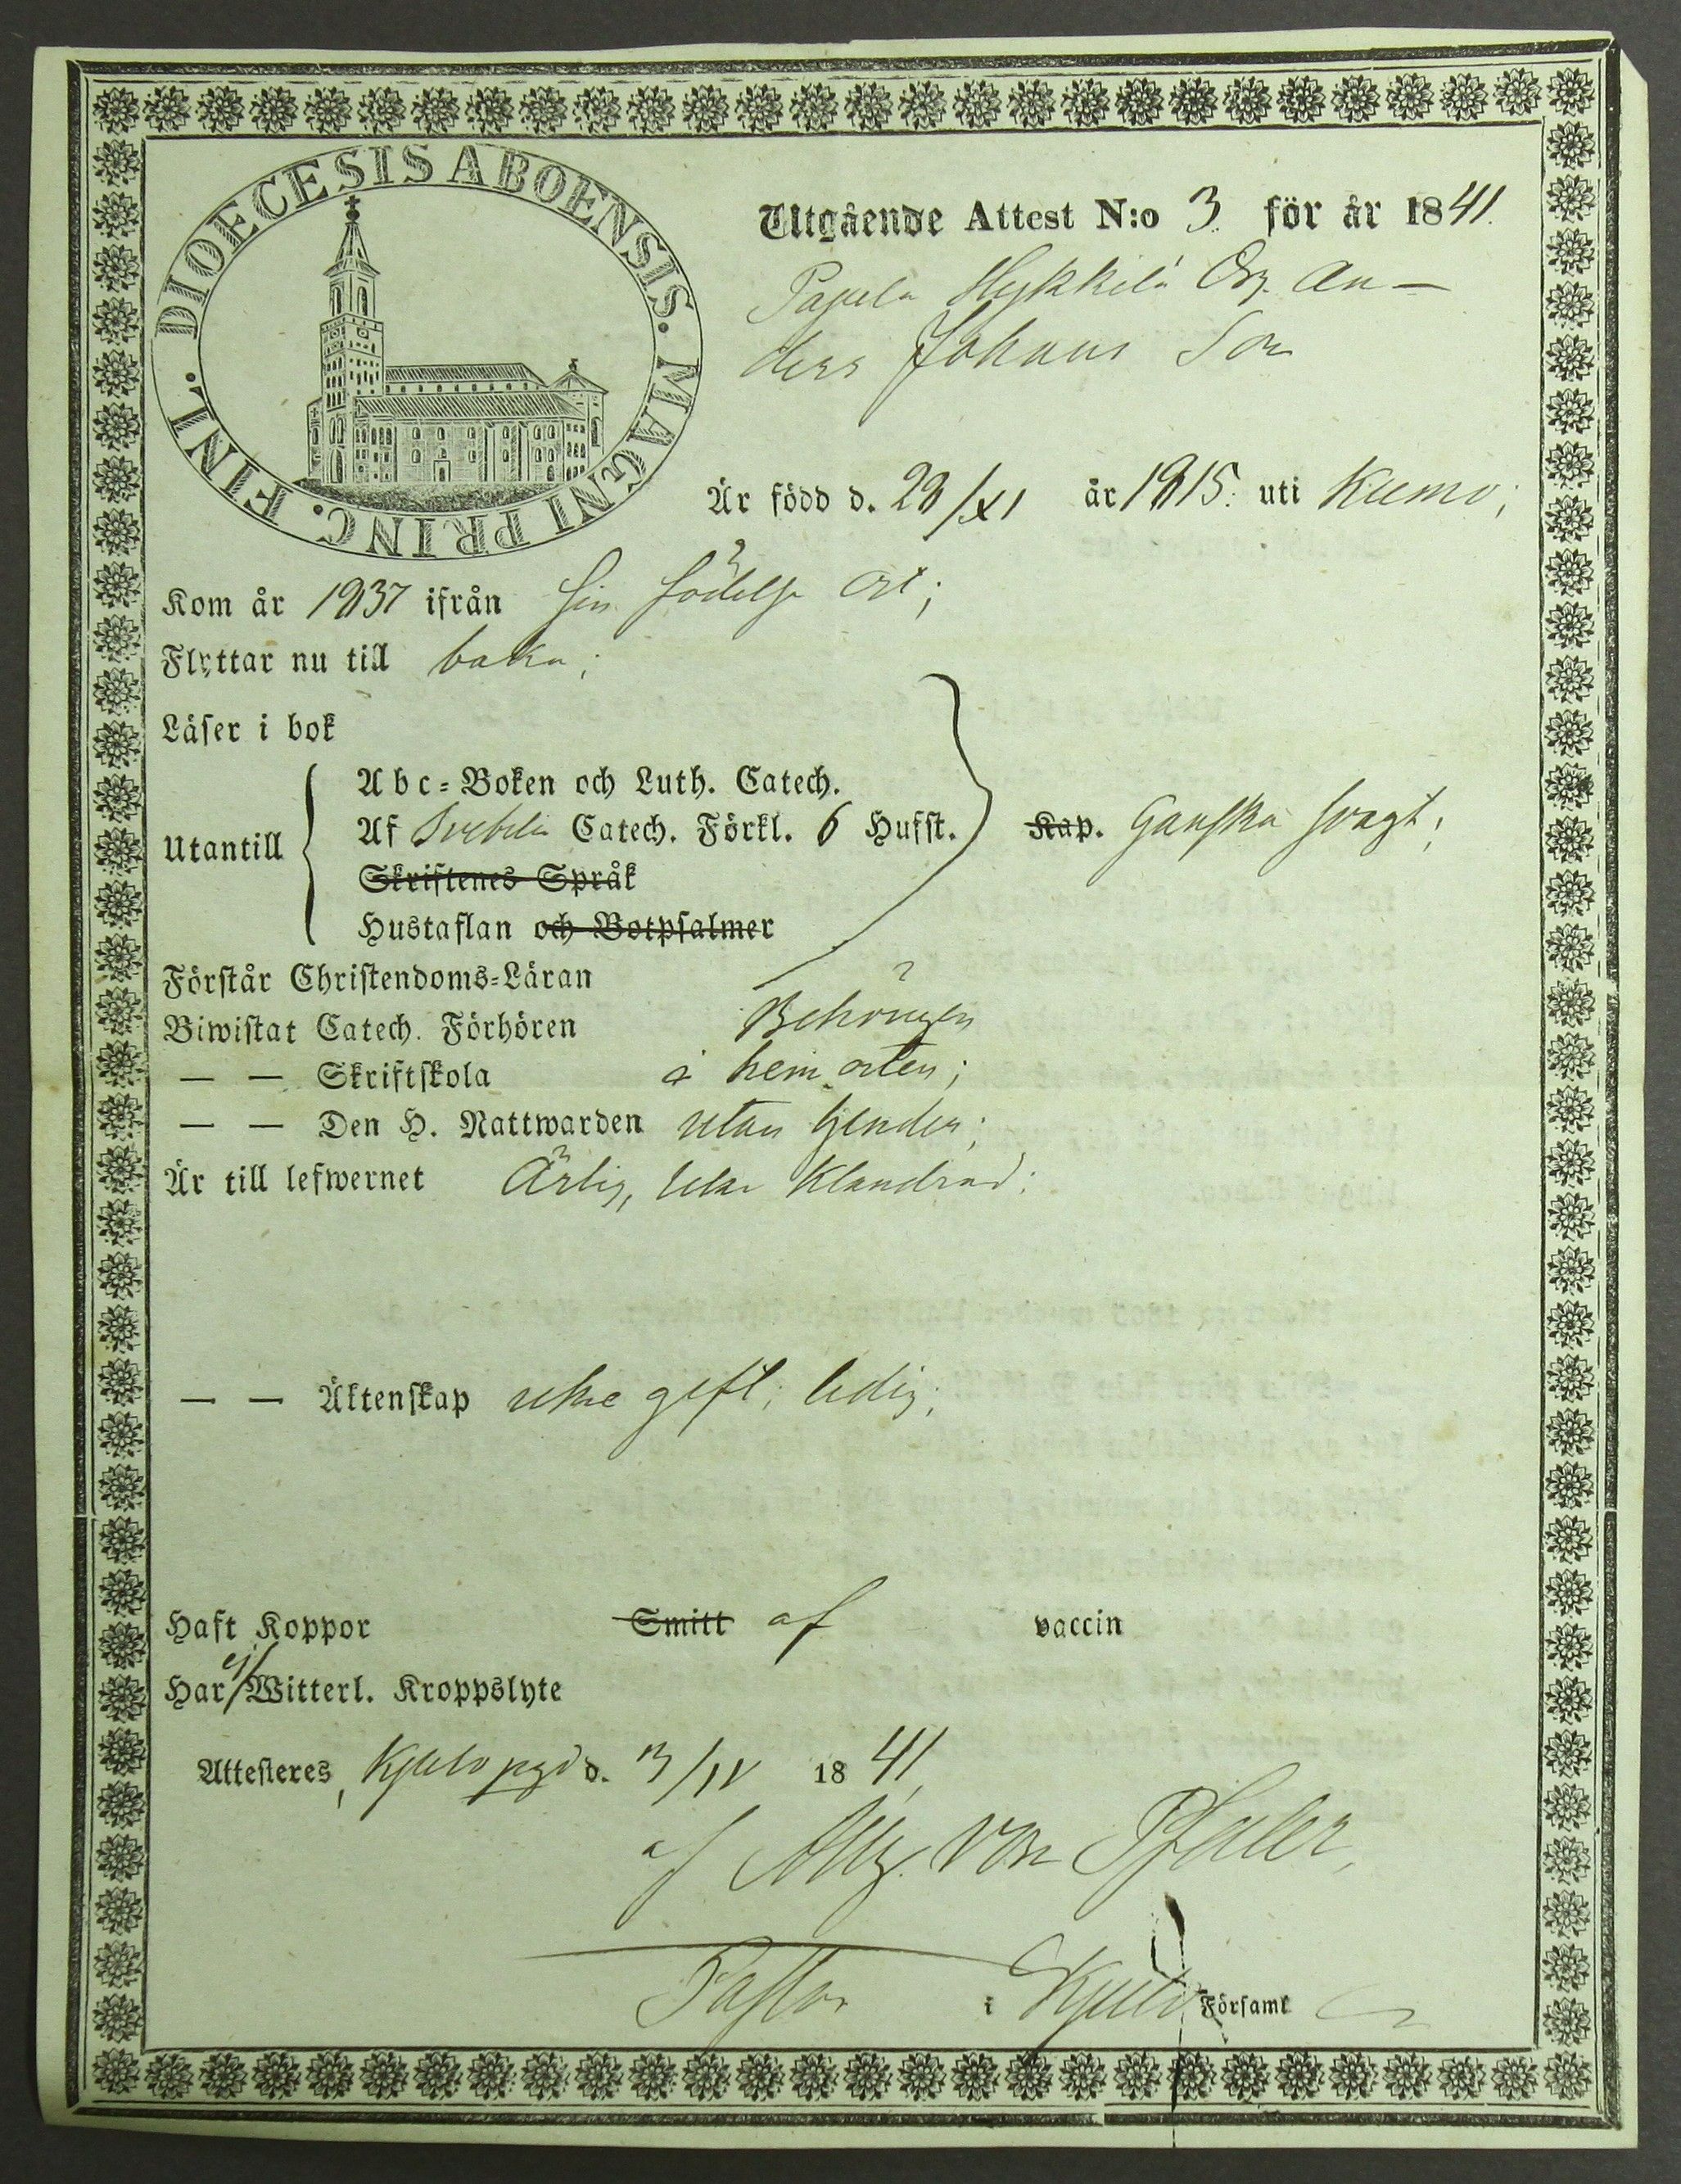 DIOECESIS ABOENSIS. MAGNI PRINC. FINL.
Utgående Attest N:o 3 för år 1841.
Hykkilä An-
ders Johans Son
Är född d. 28/XI år 1815. uti Kumo;
Kom år 1837 ifrån sin födelse ort;
Flyttar nu till baka;
Läser i bok
Abc-Boken och Luth. Catech.
Utantill Af Svebelii Catech. Förkl. 6 Hufst. Kap. Ganska svagt;
Skriftenes Språk
Hustaflan och Botpsalmer
Förstår Christendoms-Läran
Biwistat Catech. Förhören Behörigen
— — Skriftskola å hem orten;
— — Den H. Nattwarden utan hinder;
Är till lefwernet Ärlig, icke klandrad;
— — Äktenskap icke gift; ledig;
Haft Koppor Smitt af vaccin
Har ej Witterl. Kroppslyte
Attesteres, Kjulo d. 3/IV 1841,
af von Pfaler,
Pastor i Kjulo Församl